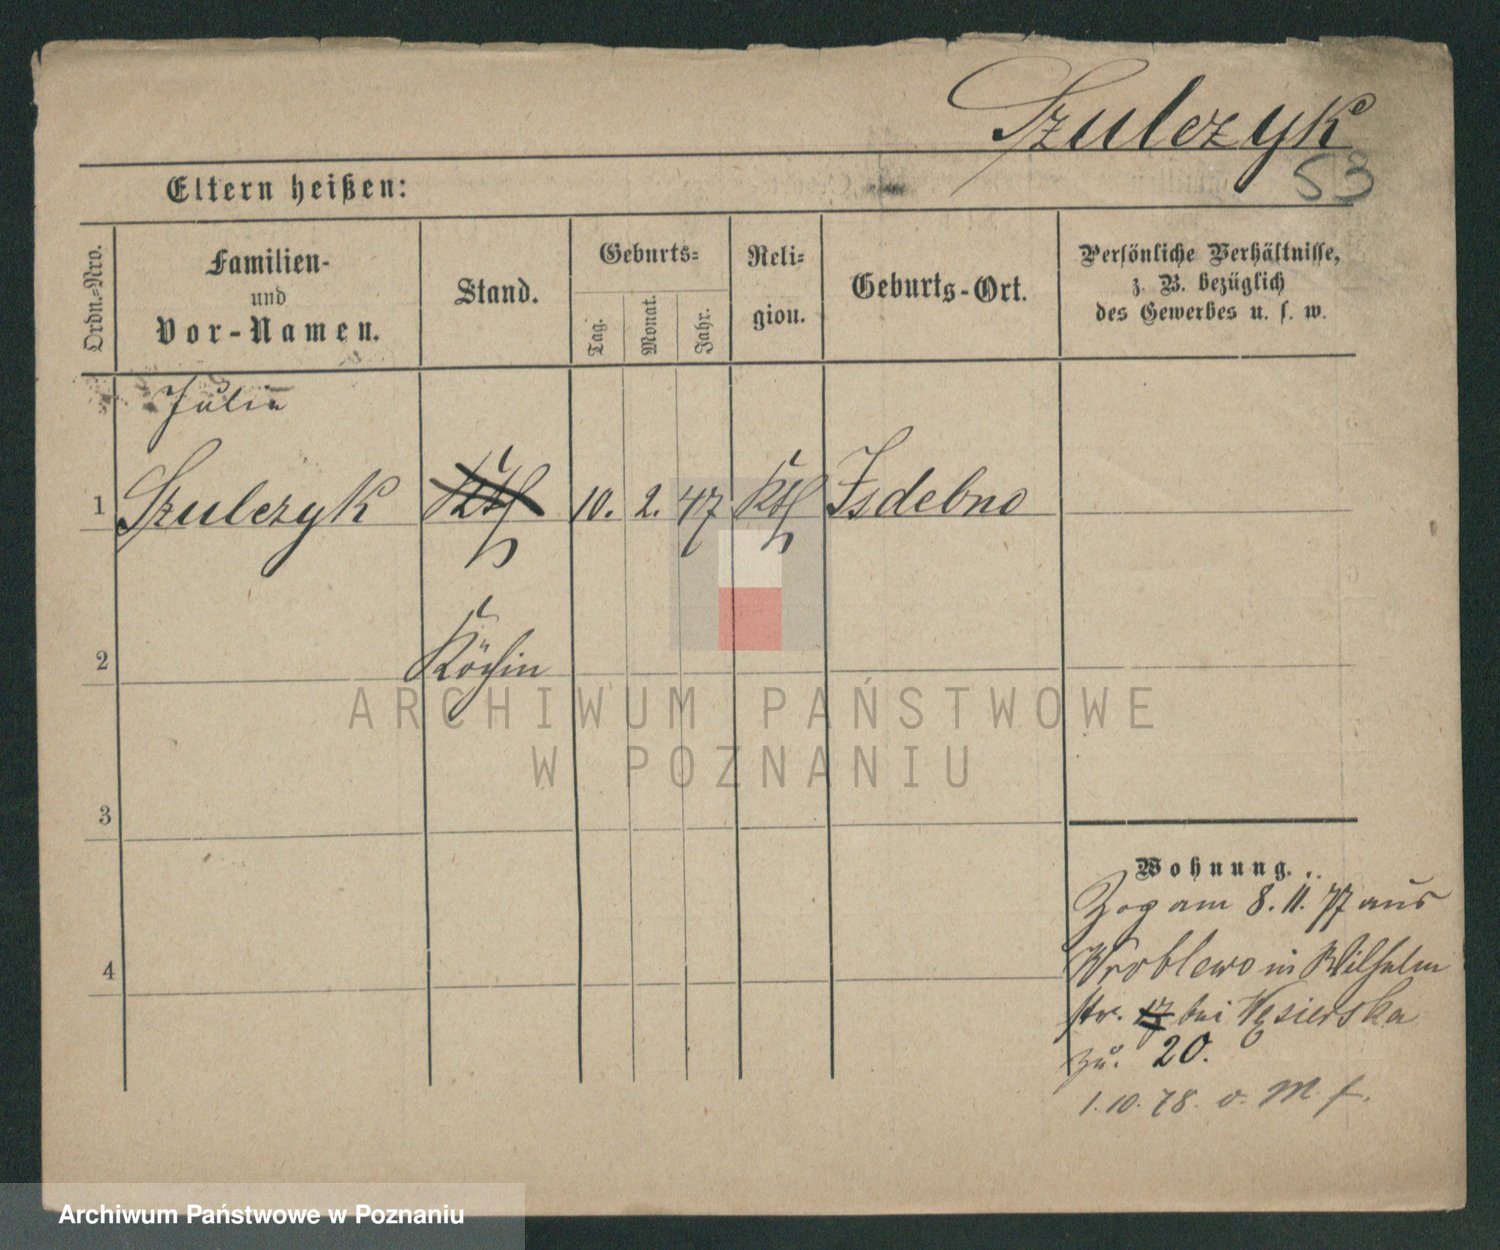 Szulczyk
53
Eltern heißen:
Ordn.-Nro.
Familien-
und
Vor-Namen.
Stand.
Geburts-
Tag.
Monat.
Jahr.
Reli-
gion.
Geburts-Ort.
Persönliche Verhältnisse,
z. B. bezüglich
des Gewerbes u. s. w.
Julia
1 Szulczyk Kth 10. 2. 47 Kth Isdebno
2 Köchin
3
4
Wohnung.
Zog am 8. 11. 77 aus
Wroblewo in Wilhelm
str. 17 bei Węsierska
zu. 20.
1. 10. 78. o. M. f.
ARCHIWUM PAŃSTWOWE
W POZNANIU
Archiwum Państwowe w Poznaniu